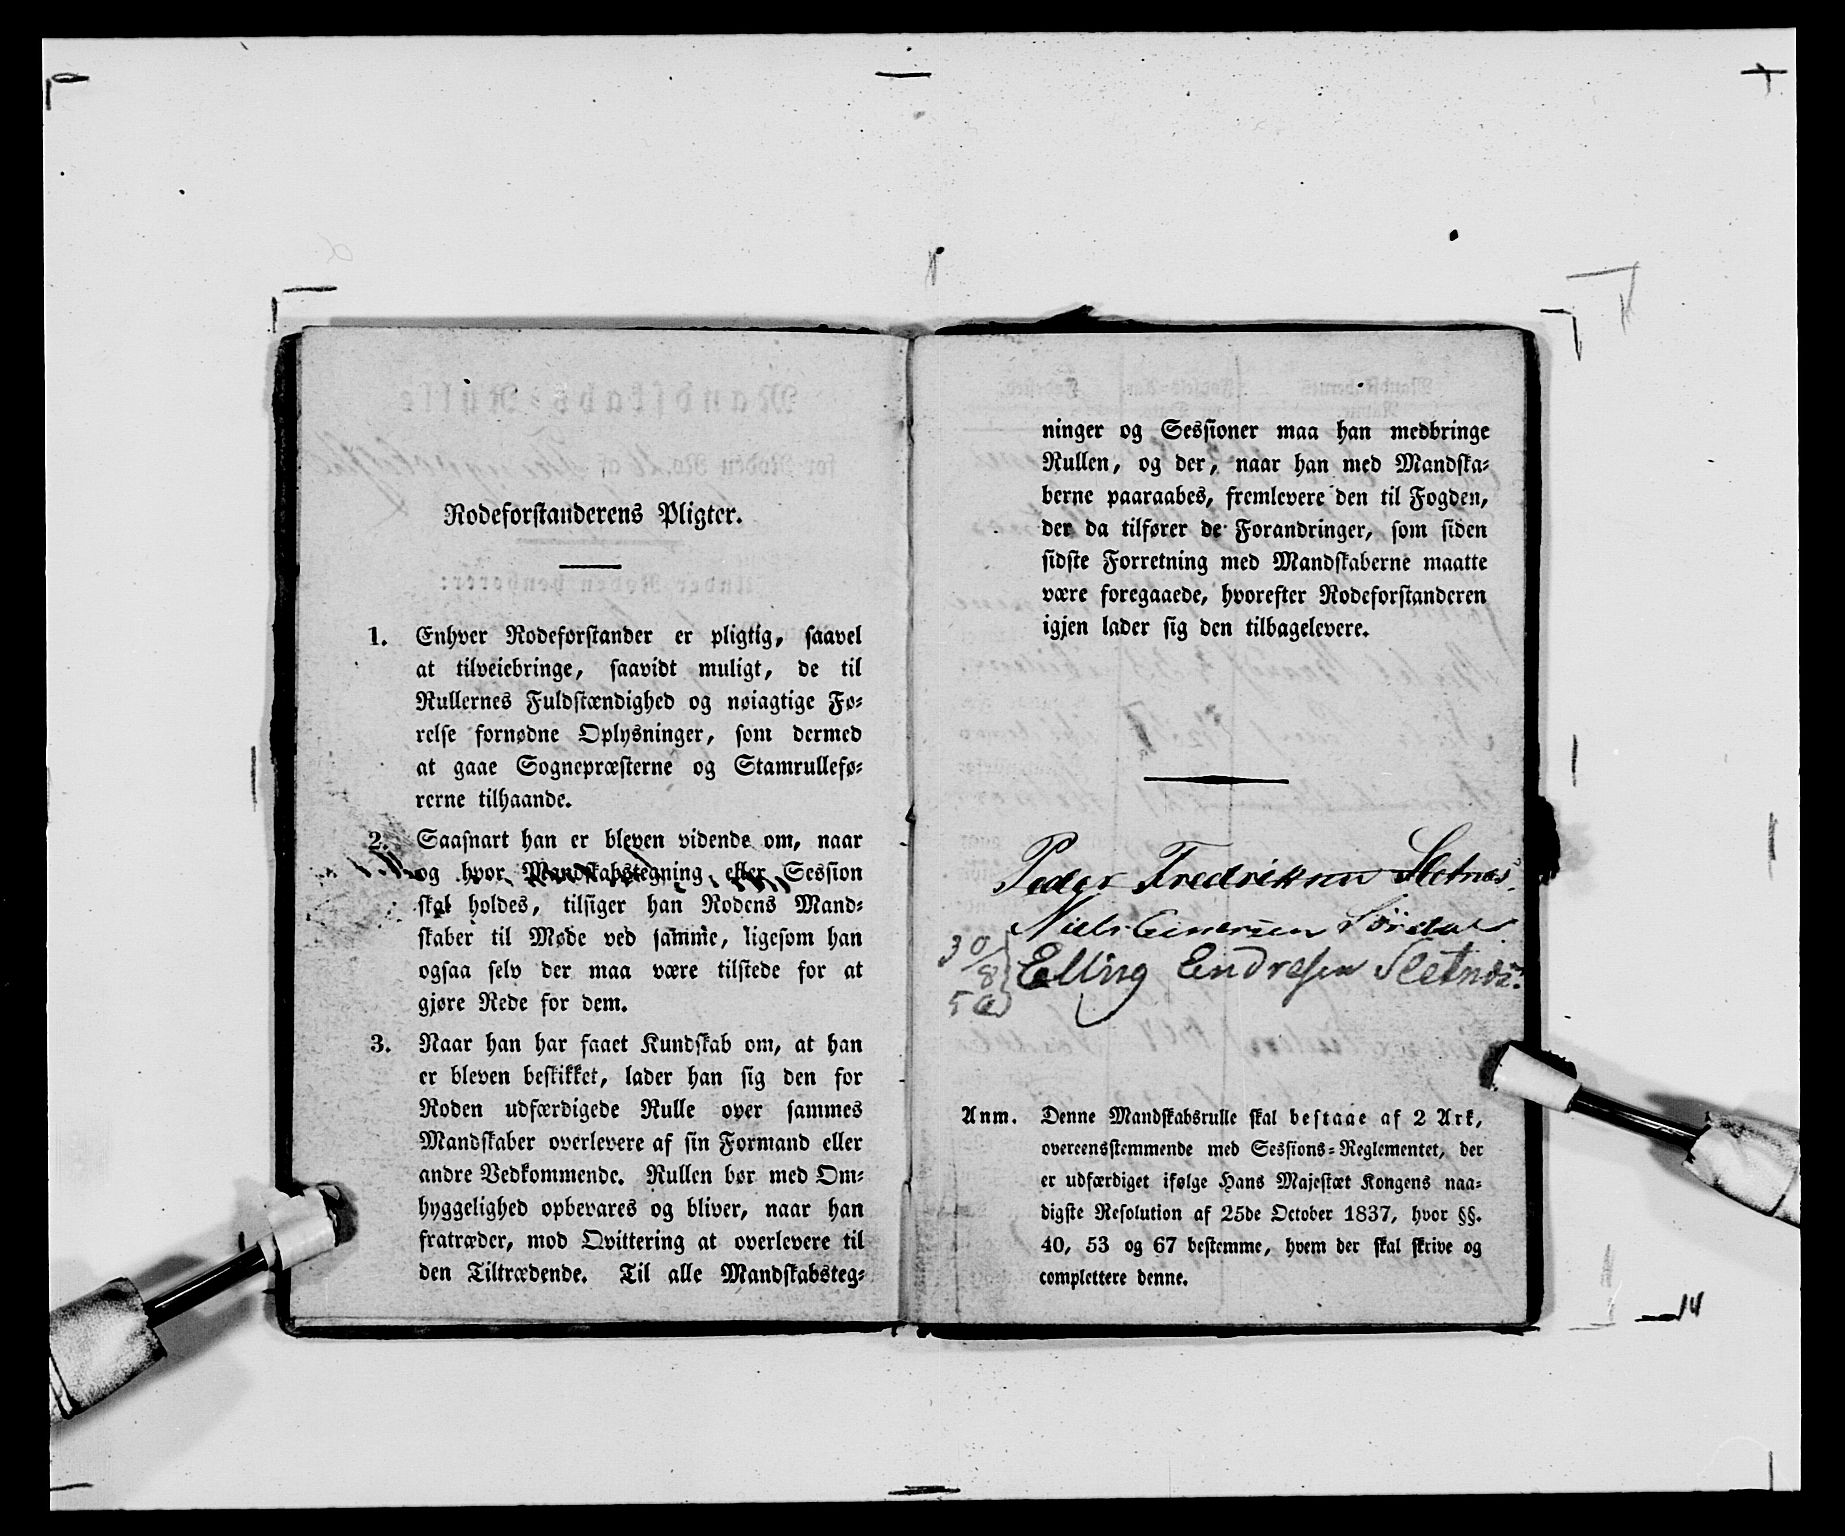 Rodeforstanderens Pligter.
1. Enhver Rodeforstander er pligtig, saavel
at tilveiebringe, saavidt muligt, de til
Rullernes Fuldstændighed og nøiagtige Fø-
relse fornødne Oplysninger, som dermed
at gaae Sognepræsterne og Stamrullefø-
rerne tilhaande.
2. Saasnart han er bleven vidende om, naar
og hvor Mandskabstegning eller Session
skal holdes, tilsiger han Rodens Mand-
skaber til Møde ved samme, ligesom han
ogsaa selv der maa være tilstede for at
gjøre Rede for dem.
3. Naar han har faaet Kundskab om, at han
er bleven beskikket, lader han sig den for
Roden udfærdigede Rulle over sammes
Mandskaber overlevere af sin Formand eller
andre Vedkommende. Rullen bør med Om-
hyggelighed opbevares og bliver, naar han
fratræder, mod Qvittering at overlevere til
den Tiltrædende. Til alle Mandskabsteg-
ninger og Sessioner maa han medbringe
Rullen, og der, naar han med Mandska-
berne paaraabes, fremlevere den til Fogden,
der da tilfører de Forandringer, som siden
sidste Forretning med Mandskaberne maatte
være foregaaede, hvorefter Rodeforstanderen
igjen lader sig den tilbagelevere.
Peder Fredriksen Sletnæs
Niels Sørdal
30/8 Elling Endresen Sletnæs
50
Anm. Denne Mandskabsrulle skal bestaae af 2 Ark,
overeensstemmende med Sessions-Reglementet, der
er udfærdiget ifølge Hans Majestæt Kongens naa-
digste Resolution af 25de October 1837, hvor §§.
40, 53 og 67 bestemme, hvem der skal skrive og
complettere denne.
14